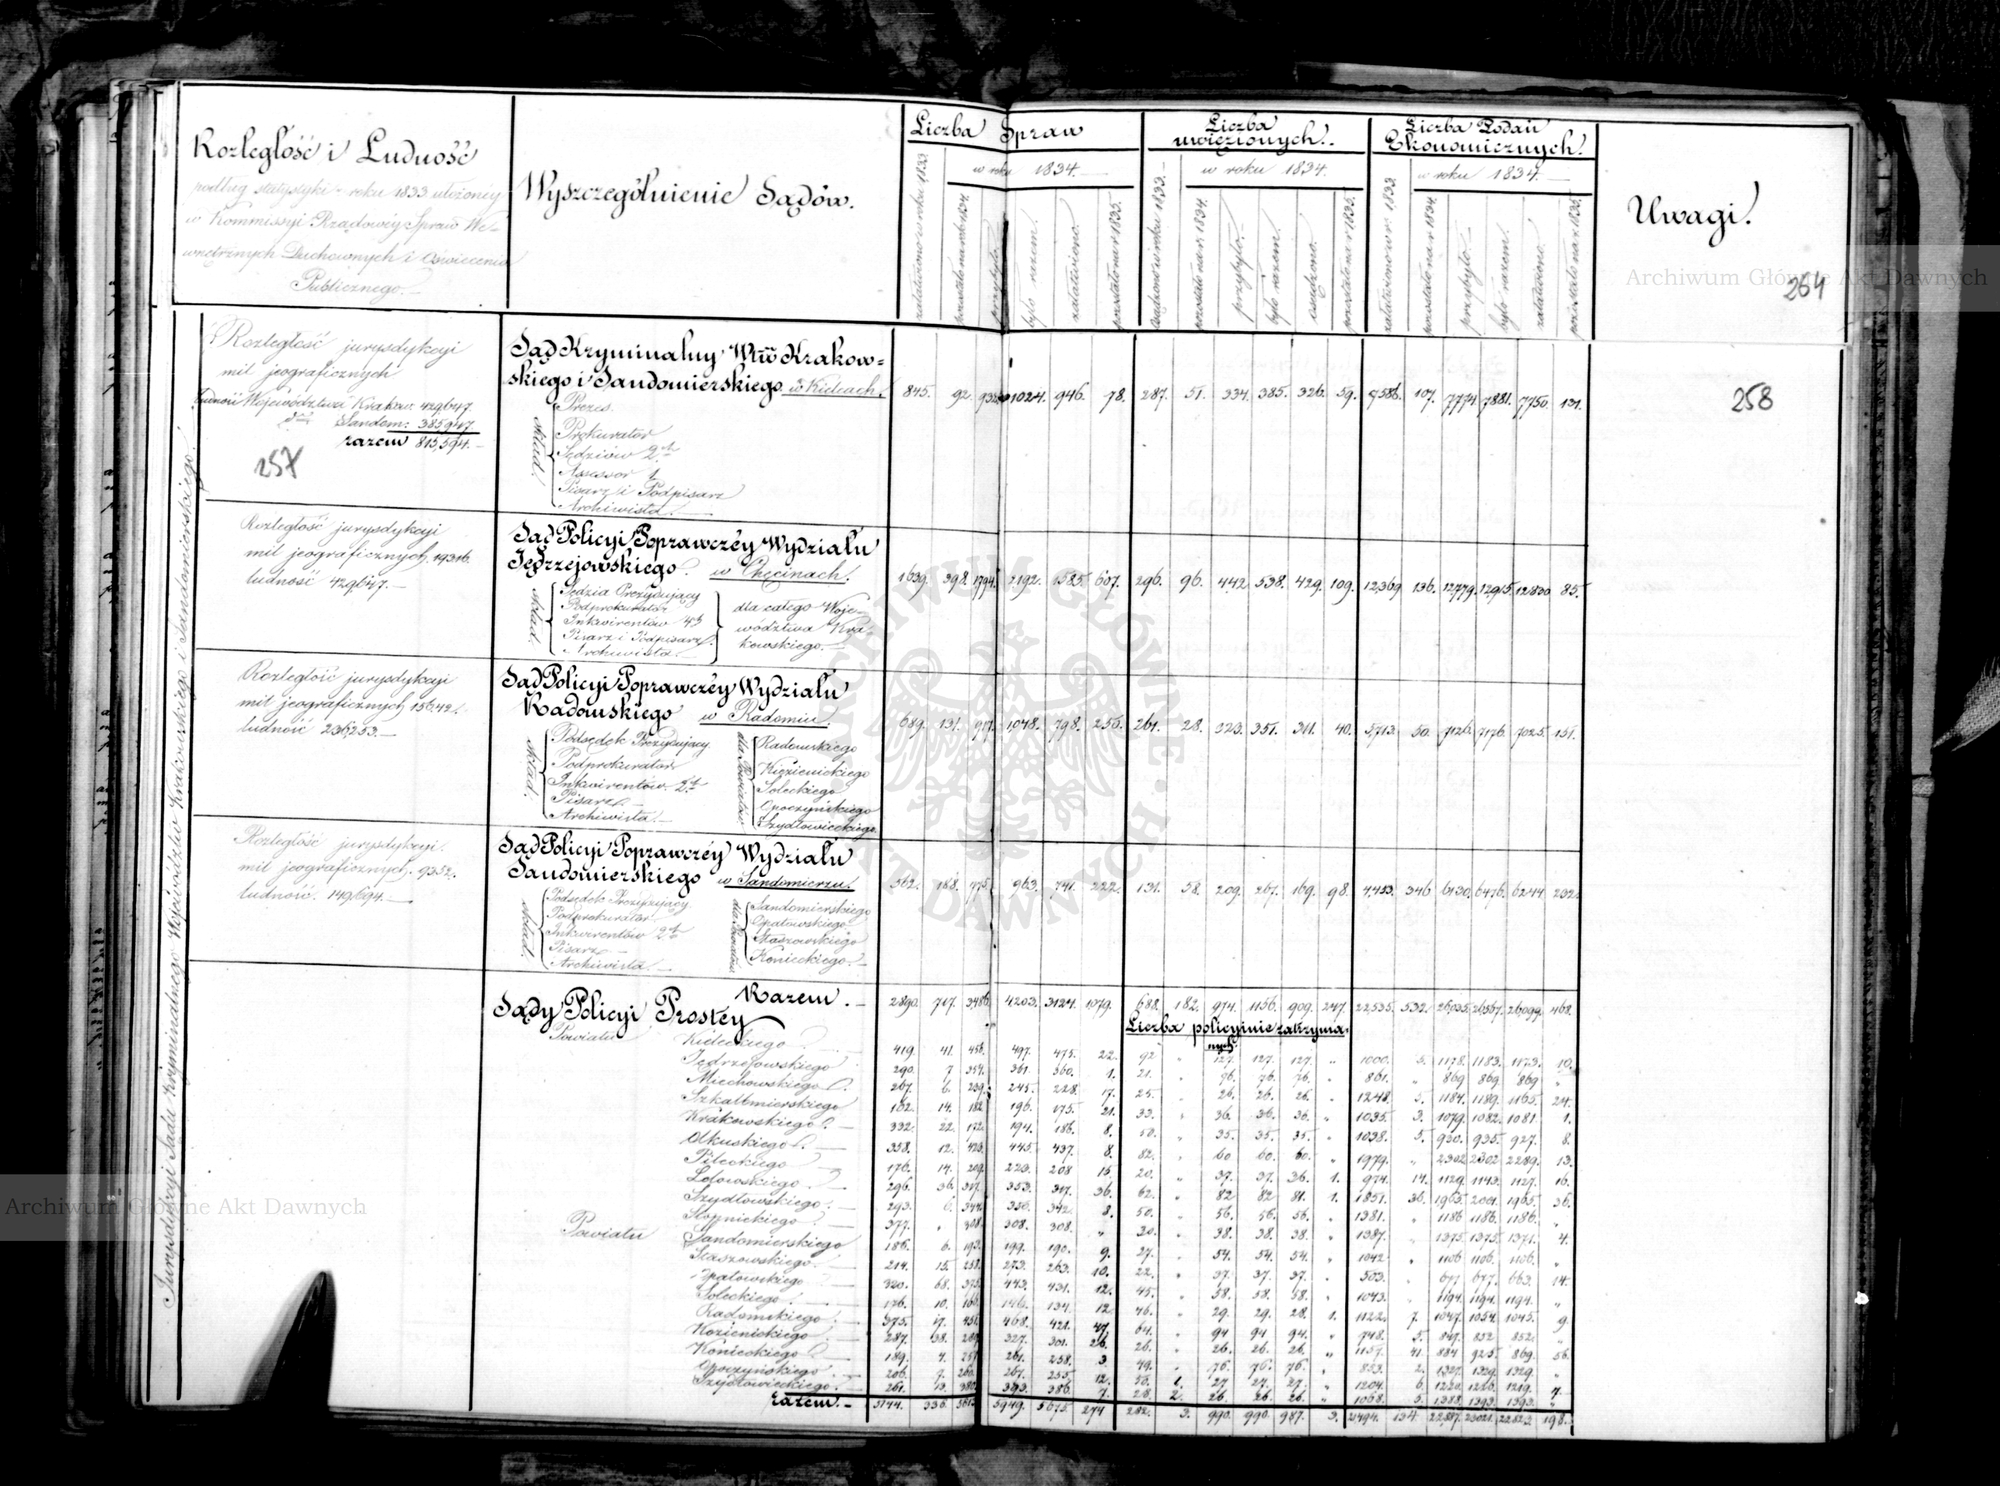 Rozległość i Ludność
podług statystyki z roku 1833 ułożonéy
w Kommissyi Rządowéy Spraw We-
wnętrznych Duchownych i Oświecenia
Publicznego.
Wyszczególnienie Sądów.
Liczba Spraw
w roku 1834.
załatwiono w roku 1833
pozostało na rok 1834.
przybyło.
było razem.
załatwiono.
pozostało na r. 1835.
Liczba
uwięzionych.
w roku 1834.
osądzono w roku 1833.
pozostało na r. 1834.
przybyło.
było razem.
osądzono.
pozostało na r. 1835.
Liczba Podań
Ekonomicznych.
w roku 1834.
załatwiono w r. 1833
pozostało na r. 1834.
przybyło.
było razem.
załatwiono.
pozostało na r. 1835.
Uwagi.
264
258
257
Jurysdykcyi Sądu Kryminalnego Województw Krakowskiego i Sandomierskiego
Rozległość jurysdykcyi
mil jeograficznych
Ludność Województwa Krakow. 429,647.
Sandom: 385,947.
razem 815,594.
Sąd Kryminalny Wtw Krakow-
skiego i Sandomierskiego w Kielcach.
Skład.
Prezes.
Prokurator
Sędziów 2ch
Assessor 1.
Pisarz i Podpisarz
Archiwista.
845. 92. 932. 1024. 946. 78. 287. 51. 334. 385. 326. 59. 7586. 107. 7774. 7881. 7750. 131.
Rozległość jurysdykcyi
mil jeograficznych 193.16.
ludność 429,647.
Sąd Policyi Poprawczéy Wydziału
Jędrzejowskiego. w Chęcinach.
Skład.
Sędzia Prezydujący
Podprokurator
Inkwirentów 4ch
Pisarz i Podpisarz
Archiwista.
dla całego Woje-
wództwa Kra-
kowskiego.
1639. 398. 1794. 2192. 1585. 607. 296. 96. 442. 538. 429. 109. 12,369. 136. 12,779. 12,915. 12,830. 85.
Rozległość jurysdykcyi
mil jeograficznych 156.42.
ludność 236,253.
Sąd Policyi Poprawczéy Wydziału
Radomskiego w Radomiu.
Skład.
Podsędek Prezydujący
Podprokurator
Inkwirentów 2ch
Pisarz
Archiwista.
dla Powiatów
Radomskiego
Kozienickiego
Soleckiego
Opoczyńskiego
Szydłowieckiego.
689. 131. 917. 1,048. 798. 250. 261. 28. 323. 351. 311. 40. 5,713. 50. 7126. 7176. 7025. 151.
Rozległość jurysdykcyi.
mil jeograficznych 93.52.
ludność. 149,694.
Sąd Policyi Poprawczéy Wydziału
Sandomierskiego w Sandomierzu.
Skład.
Podsędek Prezydujący
Podprokurator
Inkwirentów 2ch
Pisarz
Archiwista.
dla Powiatów
Sandomierskiego
Opatowskiego
Staszowskiego
Konieckiego.
562. 188. 775. 963. 741. 222. 131. 58. 209. 267. 169. 98. 4,453. 346. 6130. 6476. 6244. 232.
Razem.
2890. 717. 3486. 4203. 3124. 1,079. 688. 182. 974. 1156. 909. 247. 22,535. 532. 26,035. 26,567. 26,099. 468.
Sądy Policyi Prostéy
Liczba policyinie zatrzyma-
nych.
Powiatu Kieleckiego 419. 41. 456. 497. 475. 22. 92. " 127. 127. 127. " 1000. 5. 1178. 1183. 1173. 10.
Jędrzejowskiego 290. 7. 354. 361. 360. 1. 21. " 76. 76. 76. " 861. " 869. 869. 869. "
Miechowskiego 267. 6. 239. 245. 228. 17. 25. " 26. 26. 26. " 1248. 5. 1184. 1189. 1165. 24.
Szkalbmierskiego 162. 14. 182. 196. 175. 21. 33. " 36. 36. 36. " 1035. 3. 1079. 1082. 1081. 1.
Krakowskiego 332. 22. 172. 194. 186. 8. 50. " 35. 35. 35. " 1038. 5. 930. 935. 927. 8.
Olkuskiego 358. 12. 423. 445. 437. 8. 82. " 60. 60. 60. " 1979. " 2302. 2302. 2289. 13.
Pileckiego 176. 14. 209. 223. 208. 15. 20. " 37. 37. 36. 1. 974. 14. 1129. 1143. 1127. 16.
Lelowskiego 296. 36. 317. 353. 317. 36. 62. " 82. 82. 81. 1. 1851. 36. 1965. 2001. 1965. 36.
Szydłowskiego 293. 6. 344. 350. 342. 8. 50. " 56. 56. 56. " 1381. " 1186. 1186. 1186. "
Stopnickiego 377. " 308. 308. 308. " 30. " 38. 38. 38. " 1387. " 1375. 1375. 1371. 4.
Powiatu Sandomierskiego 186. 6. 193. 199. 190. 9. 27. " 54. 54. 54. " 1042. " 1106. 1106. 1106. "
Staszowskiego 214. 15. 258. 273. 263. 10. 22. " 37. 37. 37. " 503. " 677. 677. 663. 14.
Opatowskiego 320. 68. 375. 443. 431. 12. 45. " 58. 58. 58. " 1043. " 1194. 1194. 1194. "
Soleckiego 176. 10. 136. 146. 134. 12. 46. " 29. 29. 28. 1. 1122. 7. 1047. 1054. 1045. 9.
Radomskiego 375. 17. 451. 468. 421. 47. 64. " 94. 94. 94. " 748. 5. 847. 852. 852. "
Kozienickiego 287. 38. 289. 327. 301. 26. 26. " 26. 26. 26. " 1157. 41. 884. 925. 869. 56.
Konieckiego 189. 4. 257. 261. 258. 3. 49. " 76. 76. 76. " 853. 2. 1327. 1329. 1329. "
Opoczyńskiego 206. 7. 260. 267. 255. 12. 50. 1. 27. 27. 27. " 1204. 6. 1220. 1226. 1219. 7.
Szydłowieckiego 261. 13. 380. 393. 386. 7. 28. 2. 26. 26. 26. " 1068. 5. 1388. 1393. 1393. "
razem. 5144. 336. 5613. 5949. 5675. 274. 282. 3. 990. 990. 987. 3. 21494. 134. 22,887. 23021. 22,823. 198.
Archiwum Główne Akt Dawnych
Archiwum Główne Akt Dawnych
ARCHIWUM GŁÓWNE AKT DAWNYCH